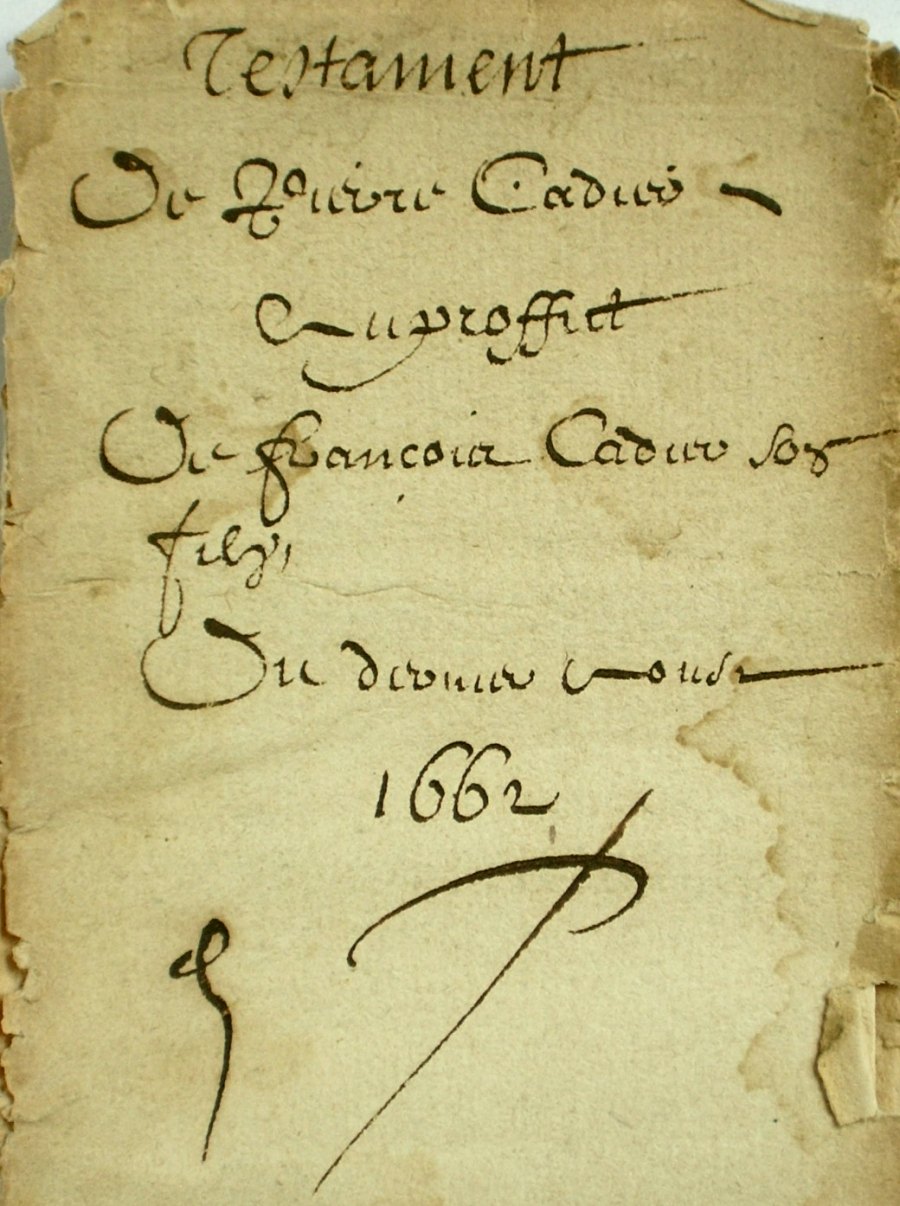 Testament
De Pierre Cadier
Au proffict
De françois Cadier son
filz
Du dernier Aoust
1662